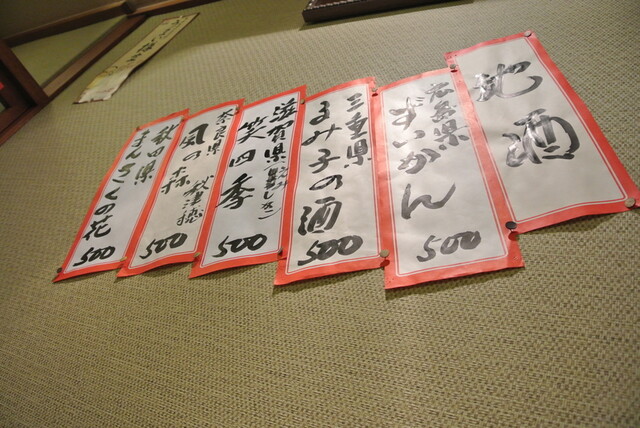 地酒
広島県
ずいかん
500
三重県
るみ子の酒
500
滋賀県
笑四季
500
奈良県
風の森
秋津穂
500
秋田県
まんさくの花
500